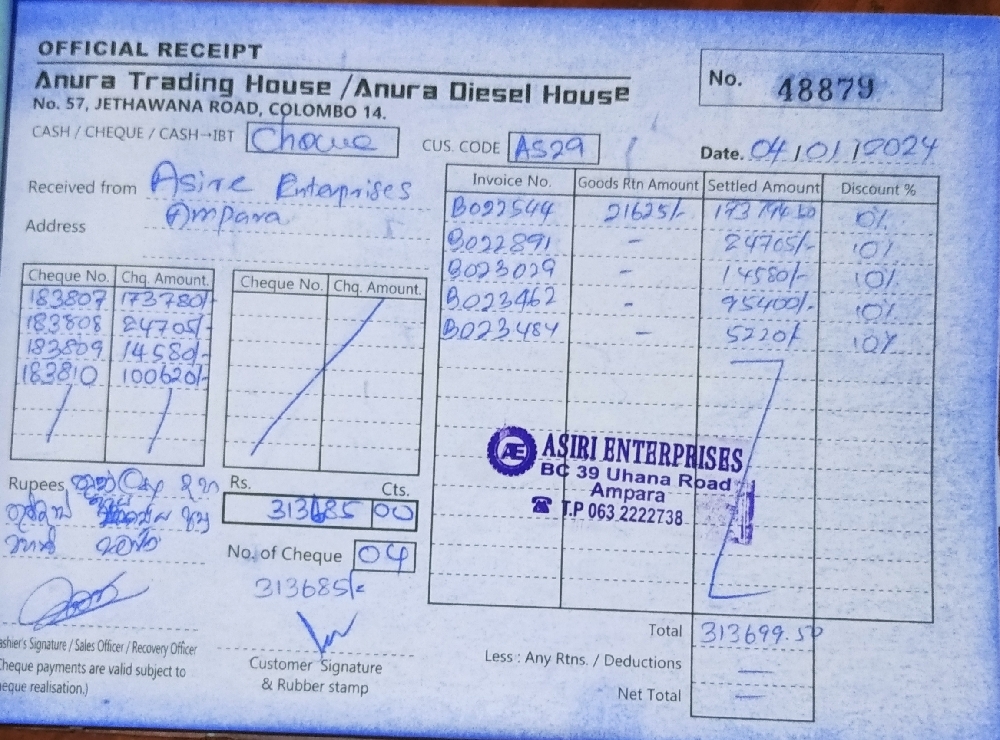 OFFICIAL RECEIPT
Anura Trading House /Anura Diesel House
No. 57, JETHAWANA ROAD, COLOMBO 14.
No. 48879
CASH / CHEQUE / CASH→IBT Cheque
CUS. CODE AS29
Date. 04/01/2024
Received from Asire Enterprises
Address Ampara
Invoice No. Goods Rtn Amount Settled Amount Discount %
B022544 21625/- 10%
B022891 - 24705/- 10%
B023029 - 14580/- 10%
B023462 - 95400/- 10%
B023484 - 5220/- 10%
Cheque No. Chq. Amount.
183807 173780/-
183808 24705/-
183809 14580/-
183810 100620/-
Cheque No. Chq. Amount.
ASIRI ENTERPRISES
AE
BC 39 Uhana Road
Ampara
T.P 063 2222738
Rupees
Rs. Cts.
313685 00
No. of Cheque 04
313685/-
Total 313699.50
Less : Any Rtns. / Deductions —
Net Total —
ashier's Signature / Sales Officer / Recovery Officer
heque payments are valid subject to
eque realisation.)
Customer Signature
& Rubber stamp